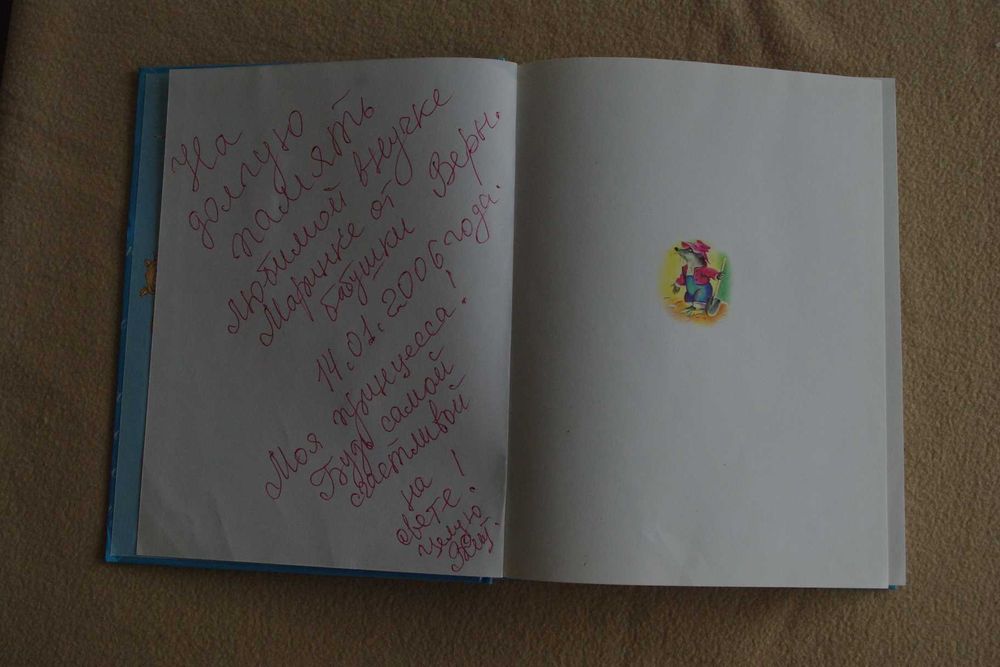 На
долгую
память
любимой внучке
Маринке от
бабушки Веры.
14.01.2006 года.
Моя принцесса!
Будь самой
счастливой
на
свете!
Целую